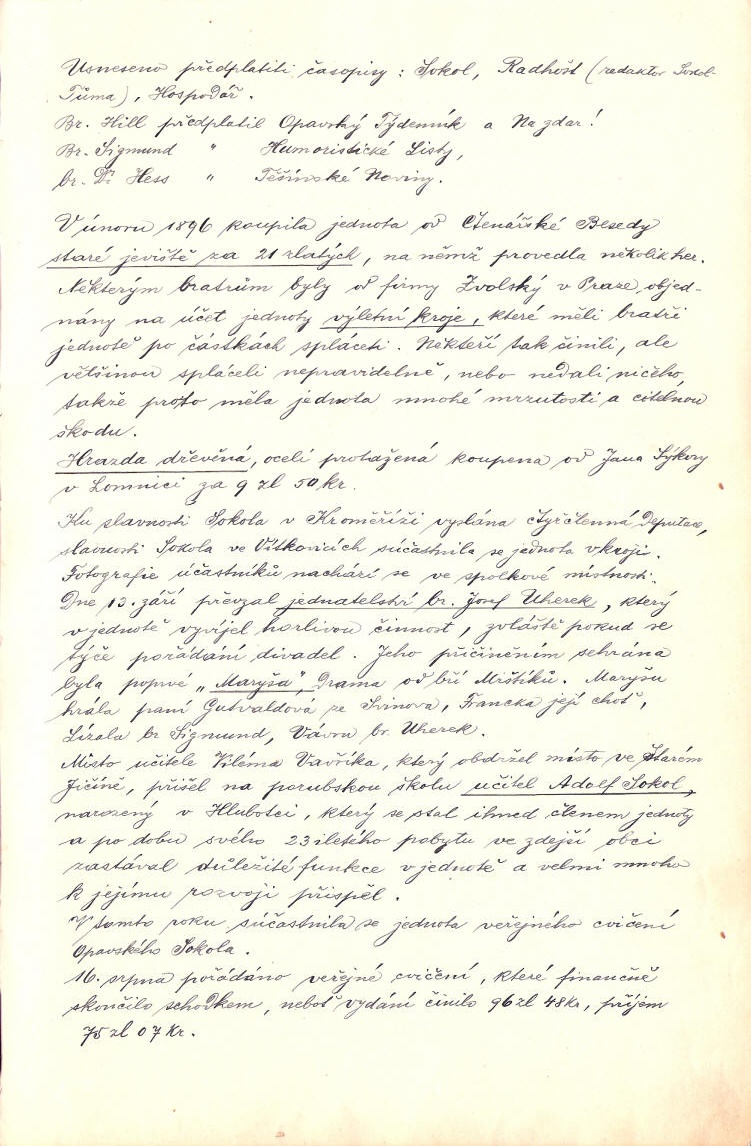 Usneseno předplatiti časopisy: Sokol, Radhošt (redaktor Sokol-
Tůma), Hospodář.
Br. Hill předplatil Opavský Týdenník a Na zdar!
Br. Sigmund " Humoristické Listy,
br. Dr. Hess " Těšínské Noviny.
V únoru 1896 koupila jednota od Čtenářské Besedy
staré jeviště za 21 zlatých, na němž provedla několik her.
Některým bratrům byly od firmy Zvolský v Praze objed-
nány na účet jednoty výletní kroje, které měli bratři
jednotě po částkách spláceti. Někteří tak činili, ale
většinou spláceli nepravidelně, nebo nedali ničeho,
takže proto měla jednota mnohé mrzutosti a citelnou
škodu.
Hrazda dřevěná, ocelí protažená koupena od Jana Sýkory
v Lomnici za 9 zl 50 kr.
Ku slavnosti Sokola v Kroměříži vyslána čtyřčlenná Deputace,
slavnosti Sokola ve Vítkovicích súčastnila se jednota v kroji.
Fotografie účastníků nachází se ve spolkové místnosti.
Dne 13. září převzal jednatelství br. Josef Uherek, který
v jednotě vyvíjel horlivou činnost, zvláště pokud se
týče pořádání divadel. Jeho přičiněním sehrána
byla poprvé „Maryša", Drama od bří Mrštíků. Maryšu
hrála paní Gutvaldová ze Svinova, Francka její choť,
Lízala br Sigmund, Vávru br. Uherek.
Místo učitele Viléma Vavříka, který obdržel místo ve Starém
Jičíně, přišel na porubskou školu učitel Adolf Sokol,
narozený v Hlubočci, který se stal ihned členem jednoty
a po dobu svého 23tiletého pobytu ve zdejší obci
zastával důležité funkce v jednotě a velmi mnoho
k jejímu rozvoji přispěl.
V tomto roku súčastnila se jednota veřejného cvičení
Opavského Sokola.
16. srpna pořádáno veřejné cvičení, které finančně
skončilo schodkem, neboť vydání činilo 96 zl 48 kr, příjem
75 zl 07 kr.